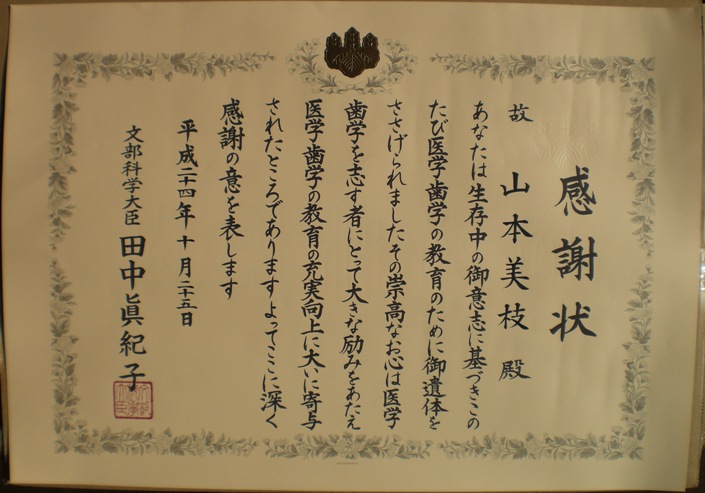 感謝状
故 山本美枝 殿
あなたは生存中の御意志に基づきこの
たび医学歯学の教育のために御遺体を
ささげられましたその崇高なお心は医学
歯学を志す者にとって大きな励みをあたえ
医学歯学の教育の充実向上に大いに寄与
されたところでありますよってここに深く
感謝の意を表します
平成二十四年十月二十五日
文部科学大臣 田中眞紀子